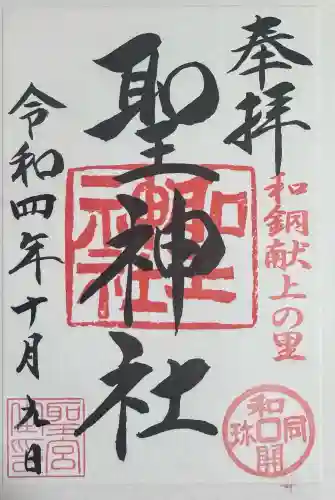 奉拝
和銅献上の里
聖神社
聖神社
令和四年十月九日
和同開珎